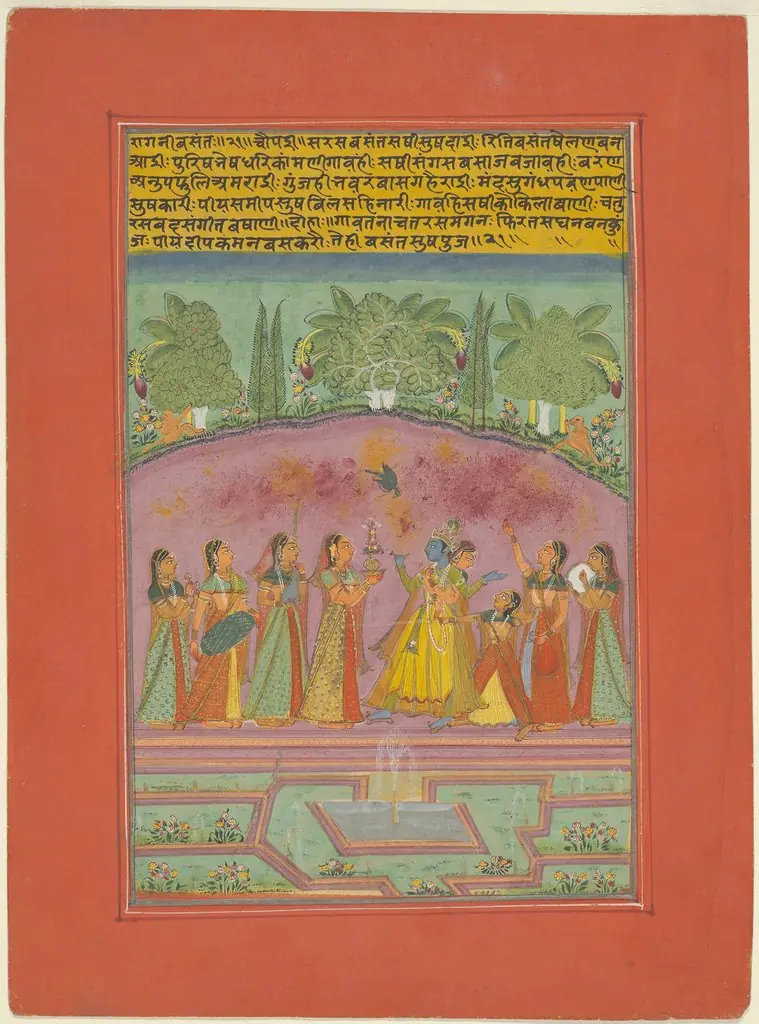 रागनी बसंतः॥२१॥ चौपई॥ सरस बसंत सषी सुषदाईः रिति बसंत षेलण बन
आईः पुरिष नेष धरि कामणी गावहीः सषी संग सब साज बजावहीः बरण
अनुप फुलि अमराईः गुंजही भवर बास गहैराईः मंद सुगंध पवण पाणी
सुषकारीः पीय समीप सुष बिलसहि नारीः गावहि सषी कोकीला बाणीः चतु
रस बद संगीत बषाणी॥ दोहाः॥ गावत नाचत रस मगनः फिरत सघन बन कुं
जः पीय दीपक मन बस करीः तैही बसंत सुष पुज॥२१॥